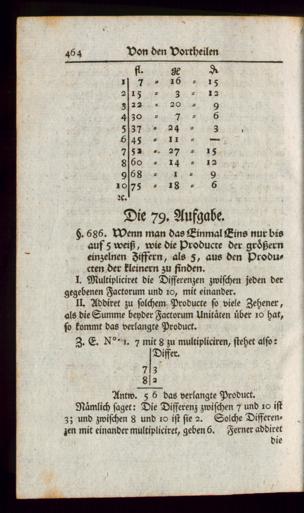 464 Von den Vortheilen
fl. kr. ₰
1 7 - 16 - 15
2 15 - 3 - 12
3 22 - 20 - 9
4 30 - 7 - 6
5 37 - 24 - 3
6 45 - 11 - —
7 52 - 27 - 15
8 60 - 14 - 12
9 68 - 1 - 9
10 75 - 18 - 6
ꝛc.
Die 79. Aufgabe.
§. 686. Wenn man das Einmal Eins nur bis
auf 5 weiß, wie die Producte der größern
einzelnen Ziffern, als 5, aus den Produ-
cten der kleinern zu finden.
I. Multipliciret die Differenzen zwischen jeden der
gegebenen Factorum und 10, mit einander.
II. Addiret zu solchem Producte so viele Zehener,
als die Summe beyder Factorum Unitäten über 10 hat,
so kommt das verlangte Product.
Z. E. No. 1. 7 mit 8 zu multipliciren, stehet also:
Differ.
7 3
8 2
Antw. 5 6 das verlangte Product.
Nämlich saget: Die Differenz zwischen 7 und 10 ist
3; und zwischen 8 und 10 ist sie 2. Solche Differen-
zen mit einander multipliciret, geben 6. Ferner addiret
die